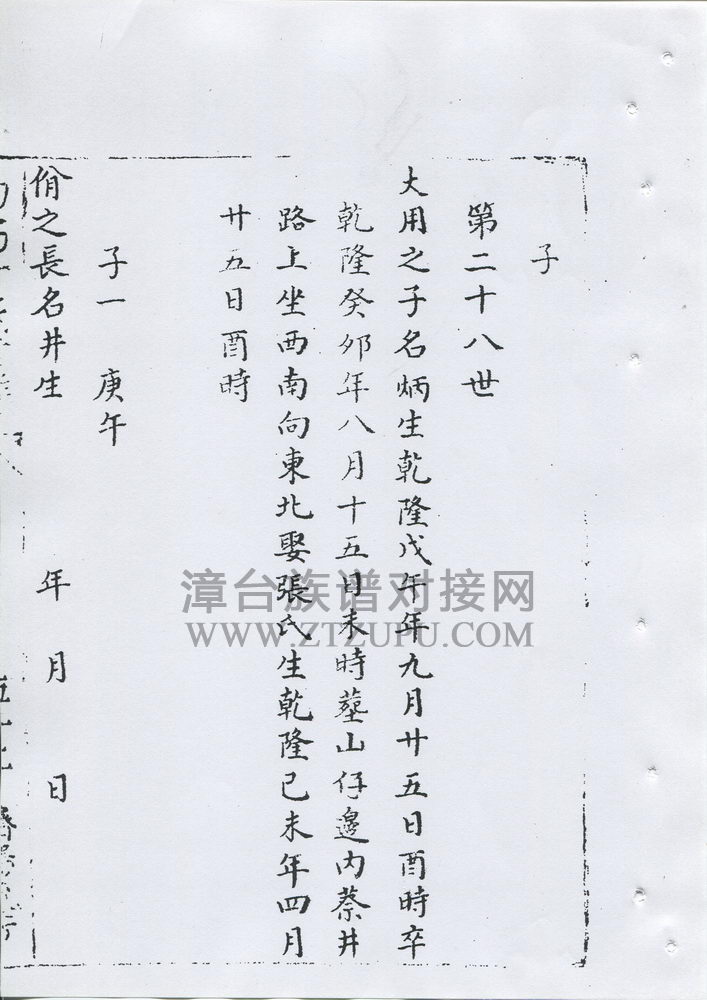 子
第二十八世
大用之子名炳生乾隆戊午年九月廿五日酉時卒
乾隆癸卯年八月十五日未時塟山仔邊內蔡井
路上坐西南向東北娶張氏生乾隆己未年四月
廿五日酉時
子一 庚午
之長名井生 年 月 日
漳台族谱对接网
WWW.ZTZUPU.COM